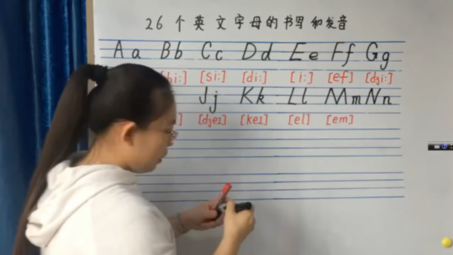 26个英文字母的书写和发音
Aa Bb Cc Dd Ee Ff Gg
[bi:] [si:] [di:] [i:] [ef] [dʒi:]
Jj Kk Ll Mm Nn
[dʒeɪ] [keɪ] [el] [em]